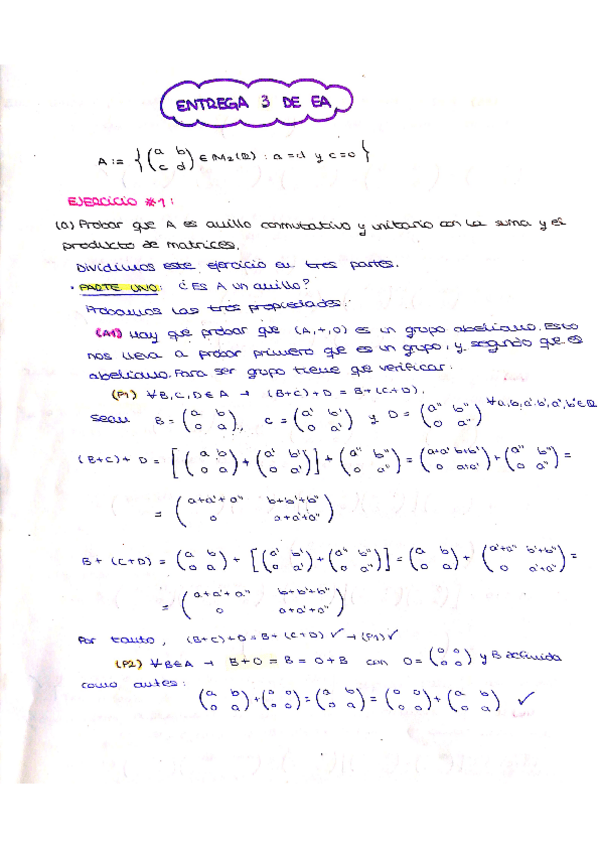 ENTREGA 3 DE EA
A := { (a b; c d) ∈ M₂(ℚ) : a = d y c = 0 }
EJERCICIO #1:
(a) Probar que A es anillo conmutativo y unitario con la suma y el
producto de matrices.
Dividimos este ejercicio en tres partes.
· PARTE UNO: ¿Es A un anillo?
Probamos las tres propiedades:
(A1) Hay que probar que (A,+,0) es un grupo abeliano. Esto
nos lleva a probar primero que es un grupo, y segundo que es
abeliano. Para ser grupo tiene que verificar:
(P1) ∀B,C,D∈A → (B+C)+D = B+(C+D).
sean B = (a b; 0 a), C = (a' b'; 0 a') y D = (a'' b''; 0 a'') ∀a,b,a',b',a'',b''∈ℚ
(B+C)+D = [(a b; 0 a) + (a' b'; 0 a')] + (a'' b''; 0 a'') = (a+a' b+b'; 0 a+a') + (a'' b''; 0 a'') =
= (a+a'+a'' b+b'+b''; 0 a+a'+a'')
B+(C+D) = (a b; 0 a) + [(a' b'; 0 a') + (a'' b''; 0 a'')] = (a b; 0 a) + (a'+a'' b'+b''; 0 a'+a'') =
= (a+a'+a'' b+b'+b''; 0 a+a'+a'')
Por tanto, (B+C)+D = B+(C+D) ✓ → (P1) ✓
(P2) ∀B∈A → B+O = B = O+B con O = (0 0; 0 0) y B definida
como antes:
(a b; 0 a) + (0 0; 0 0) = (a b; 0 a) = (0 0; 0 0) + (a b; 0 a) ✓